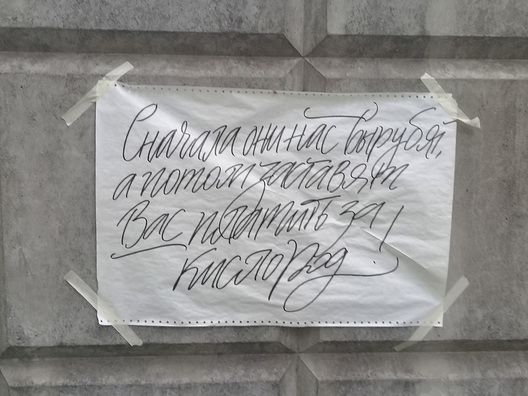 Сначала они нас вырубят,
а потом заставят
Вас платить за
кислород!